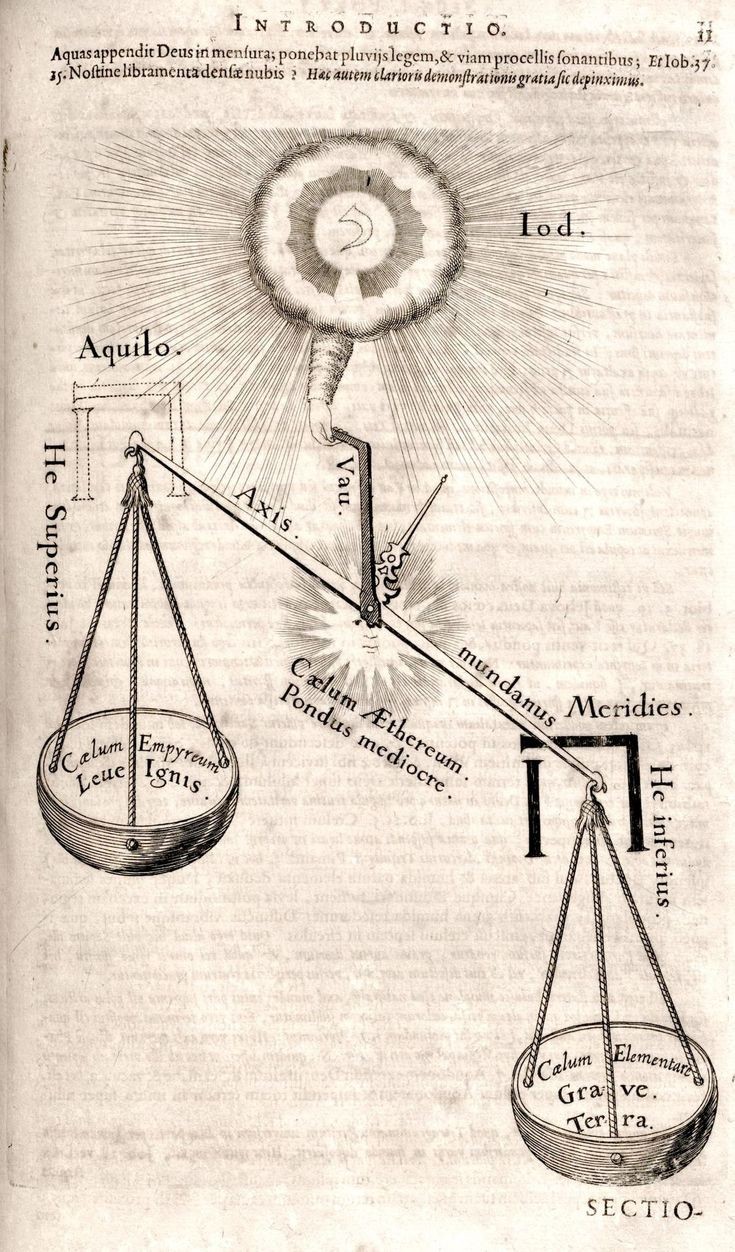 INTRODUCTIO.
11
Aquas appendit Deus in mensura; ponebat pluvijs legem, & viam procellis sonantibus; Et Iob. 37.
15. Nostine libramenta densæ nubis ? Hæc autem clarioris demonstrationis gratia sic depinximus.
י
Iod.
Aquilo.
ה
He Superius.
Vau.
Axis.
mundanus
Cælum Æthereum.
Pondus mediocre.
Meridies.
ה
He inferius.
Cælum Empyreum
Leue Ignis
Cælum Elementare
Grave.
Terra.
SECTIO-